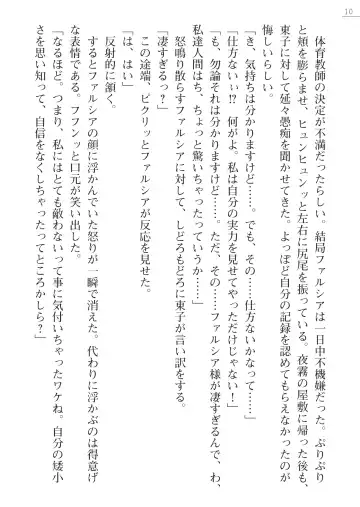 10
体育教師の決定が不満だったらしい。結局ファルシアは一日中不機嫌だった。ぷりぷり
と頰を膨らませ、ヒュンヒュンッと左右に尻尾を振っている。夜霧の屋敷に帰った後も、
東子に対して延々愚痴を聞かせてきた。よっぽど自分の記録を認めてもらえなかったのが
悔しいらしい。
「き、気持ちは分かりますけど……。でも、その……仕方ないかなって……」
「仕方ないぃ!?　何がよ。私は自分の実力を見せてやっただけじゃない!」
「も、勿論それは分かりますけど……。ただ、その……ファルシア様が凄すぎるんで、
私達人間はち、ちょっと驚いちゃったっていうか……」
怒鳴り散らすファルシアに対して、しどろもどろに東子が言い訳をする。
この途端、ピクリッとファルシアが反応を見せた。
「凄すぎるっ?」
「は、はい」
反射的に頷く。
するとファルシアの顔に浮かんでいた怒りが一瞬で消えた。代わりに浮かぶのは得意げ
な表情である。フフンッと口元が笑い出した。
「なるほど。つまり、私にはとても敵わないって事に気付いちゃったワケね。自分の矮小
さを思い知って、自信をなくしちゃったってところかしら?」